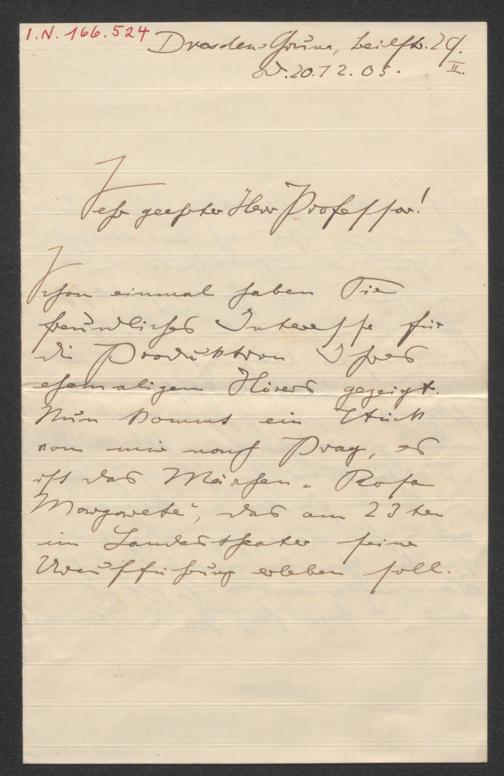 I.N. 166.524
Dresden-Gruna, 29.
d. 20.12.05. II.
Sehr geehrter Herr Professor!
Schon einmal haben Sie
freundliches Interesse für
die Produktion Ihres
ehemaligen Hörers gezeigt.
Nun kommt ein Stück
von mir nach Prag, es
ist das Märchen „Rosa
Margarete“, das am 23ten
im Landestheater seine
Uraufführung erleben soll.